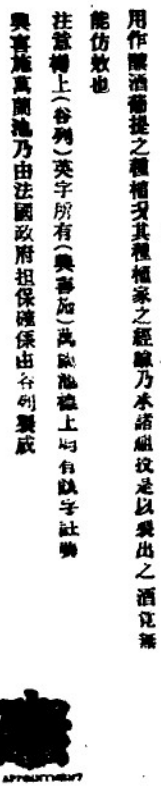 用作釀酒葡提之種植及其種植家之經驗乃承諸祖技是以製出之酒花無
能仿效也
注意樽上(谷列)英字所有(興喜施)萬蘭池樽上均有該字註明
興喜施萬蘭池乃由法國政府担保確係由谷列製成
APPOINTMENT